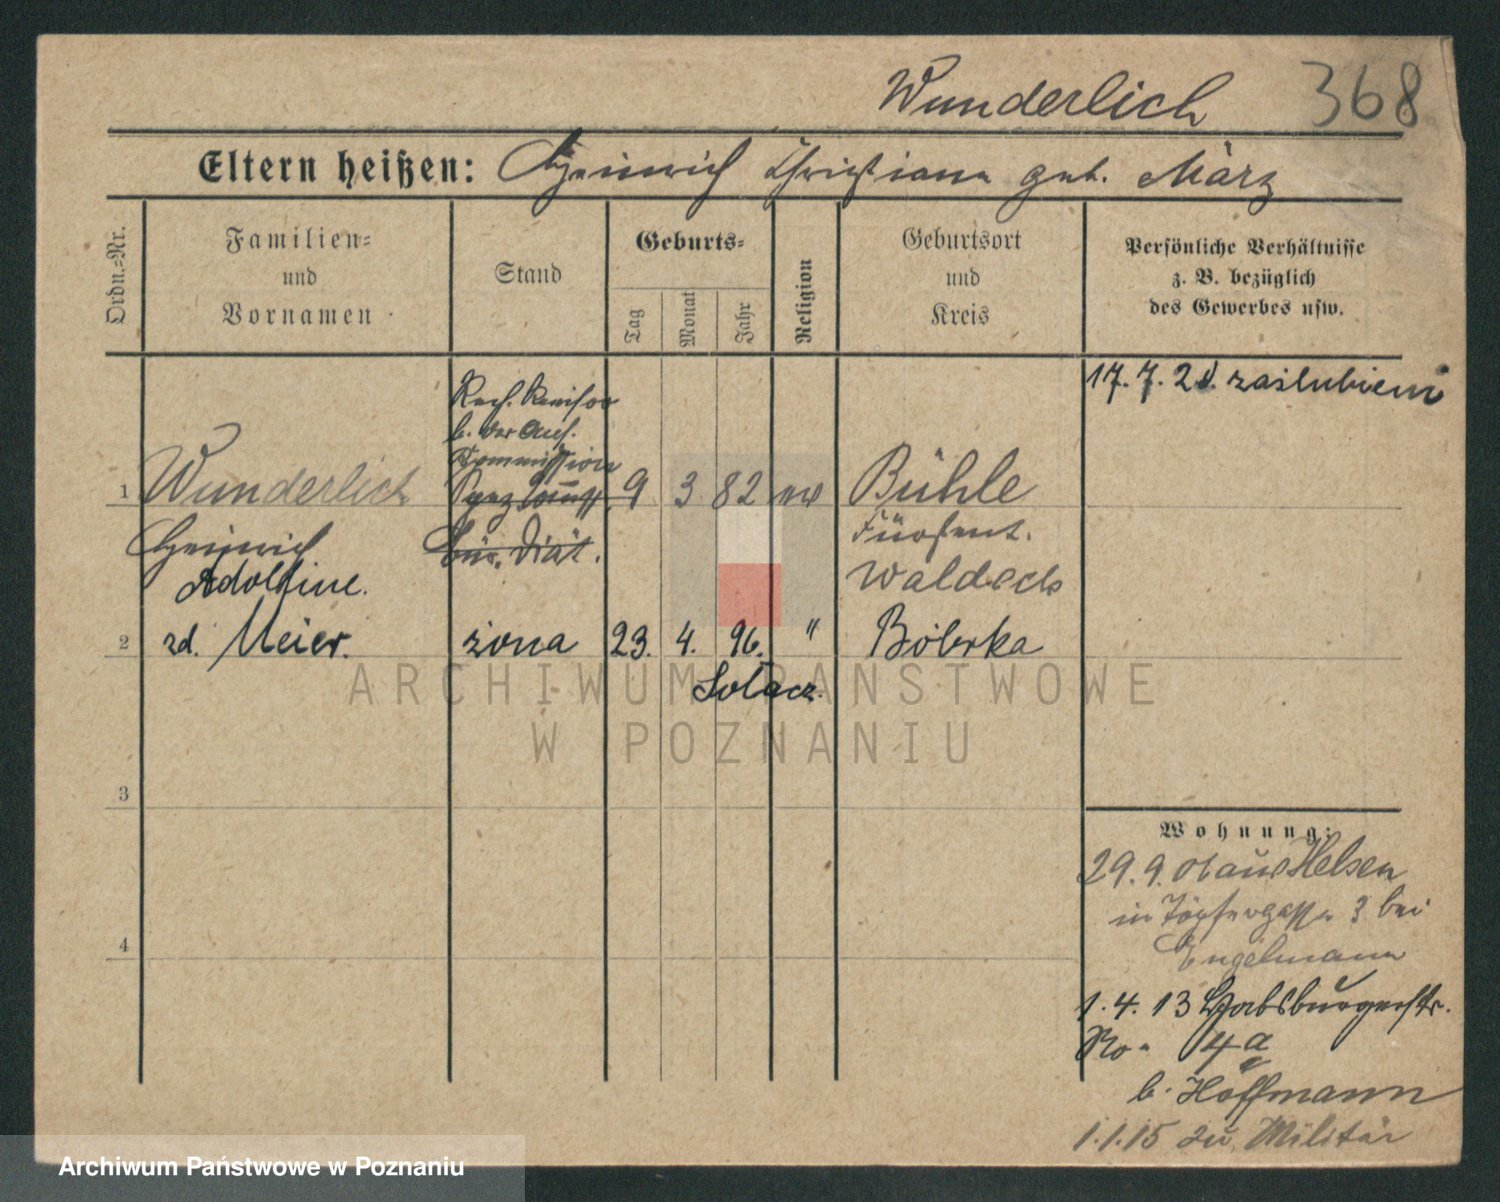 Wunderlich 368
Eltern heißen: Heinrich Christiane geb. März
Ordn.-Nr.
Familien-
und
Vornamen
Stand
Geburts-
Tag
Monat
Jahr
Religion
Geburtsort
und
Kreis
Persönliche Verhältnisse
z. B. bezüglich
des Gewerbes usw.
17. 7. 20. zaślubieni
Rech. Revisor
b. der
Commission
1 Wunderlich 9 3 82 ev Bühle
Heinrich Bür. Diät. Fürstent.
Adolfine. Waldeck
2 zd. Meier. żona 23. 4. 96. " Bóbrka
Sołacz.
ARCHIWUM PAŃSTWOWE
W POZNANIU
3
Wohnung:
29. 9. 01 aus Helsen
in Töpfergasse 3 bei
4
Engelmann
1. 4. 13 Habsburgerstr.
No. 4a
b. Hoffmann
1.1.15 zu Militär
Archiwum Państwowe w Poznaniu